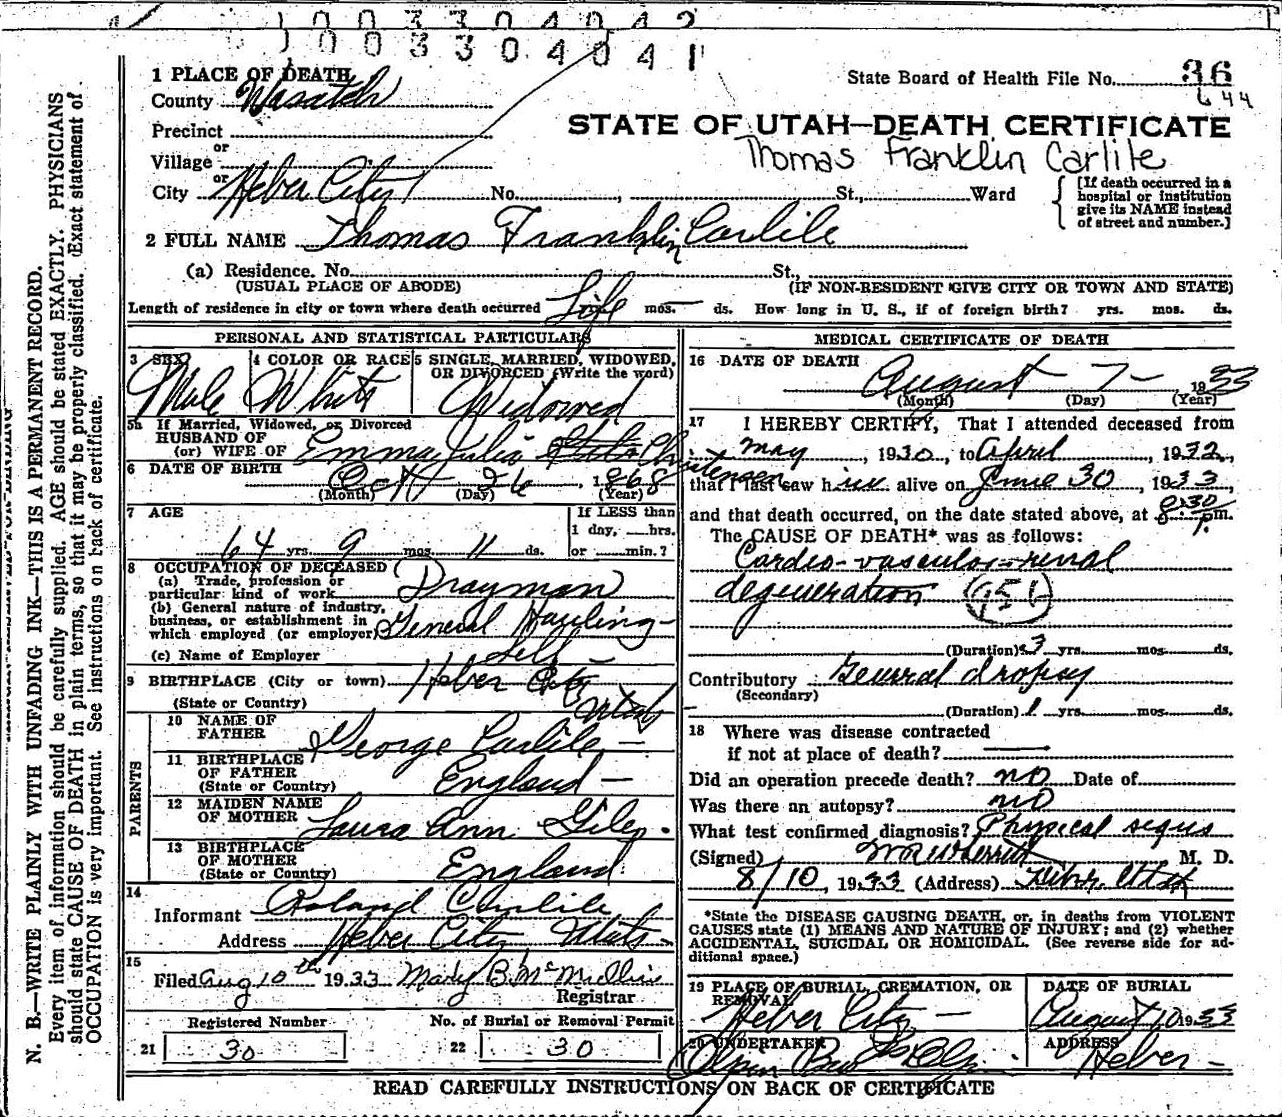 1 0 0 3 3 0 4 0 4 2
1 0 0 3 3 0 4 0 4 1
1 PLACE OF DEATH
County Wasatch
State Board of Health File No. 36
644
STATE OF UTAH—DEATH CERTIFICATE
Thomas Franklin Carlile
Precinct
or
Village
or
City Heber City No. , St., Ward
[If death occurred in a
hospital or institution
give its NAME instead
of street and number.]
2 FULL NAME Thomas Franklin Carlile
(a) Residence. No. St.,
(USUAL PLACE OF ABODE) (IF NON-RESIDENT GIVE CITY OR TOWN AND STATE)
Length of residence in city or town where death occurred Life mos. ds. How long in U. S., if of foreign birth? yrs. mos. ds.
PERSONAL AND STATISTICAL PARTICULARS
3 SEX 4 COLOR OR RACE 5 SINGLE, MARRIED, WIDOWED,
OR DIVORCED (Write the word)
Male White Widowed
5a If Married, Widowed, or Divorced
HUSBAND OF
(or) WIFE OF Emma Julia Christensen
6 DATE OF BIRTH Oct 26, 1868
(Month) (Day) (Year)
7 AGE If LESS than
1 day, hrs.
64 yrs. 9 mos. 11 ds. or min.?
8 OCCUPATION OF DECEASED
(a) Trade, profession or
particular kind of work Drayman
(b) General nature of industry,
business, or establishment in
which employed (or employer) General Hauling
(c) Name of Employer Self
9 BIRTHPLACE (City or town) Heber City
(State or Country) Utah
PARENTS
10 NAME OF
FATHER George Carlile
11 BIRTHPLACE
OF FATHER
(State or Country) England
12 MAIDEN NAME
OF MOTHER Laura Ann Giles.
13 BIRTHPLACE
OF MOTHER
(State or Country) England
14
Informant Roland Carlile
Address Heber City, Utah
15
Filed Aug 10th 1933 Mary B. McMullin
Registrar
Registered Number No. of Burial or Removal Permit
21 30 22 30
MEDICAL CERTIFICATE OF DEATH
16 DATE OF DEATH
August 7 1933
(Month) (Day) (Year)
17 I HEREBY CERTIFY, That I attended deceased from
May, 1930, to April, 1932,
that I last saw him alive on June 30, 1933,
and that death occurred, on the date stated above, at 8:30 p.m.
The CAUSE OF DEATH* was as follows:
Cardio-vascular-renal
degeneration
(Duration) 3 yrs. mos. ds.
Contributory General dropsy
(Secondary)
(Duration) 1 yrs. mos. ds.
18 Where was disease contracted
if not at place of death?
Did an operation precede death? no Date of
Was there an autopsy? no
What test confirmed diagnosis? Physical signs
(Signed) M. D.
8/10, 1933 (Address) Heber, Utah
*State the DISEASE CAUSING DEATH, or, in deaths from VIOLENT
CAUSES state (1) MEANS AND NATURE OF INJURY; and (2) whether
ACCIDENTAL, SUICIDAL OR HOMICIDAL. (See reverse side for ad-
ditional space.)
19 PLACE OF BURIAL, CREMATION, OR
REMOVAL
Heber City
DATE OF BURIAL
August 10 1933
20 UNDERTAKER
Olpin Bros
ADDRESS
Heber
READ CAREFULLY INSTRUCTIONS ON BACK OF CERTIFICATE
N. B.—WRITE PLAINLY WITH UNFADING INK—THIS IS A PERMANENT RECORD.
Every item of information should be carefully supplied. AGE should be stated EXACTLY. PHYSICIANS
should state CAUSE OF DEATH in plain terms, so that it may be properly classified. Exact statement of
OCCUPATION is very important. See instructions on back of certificate.